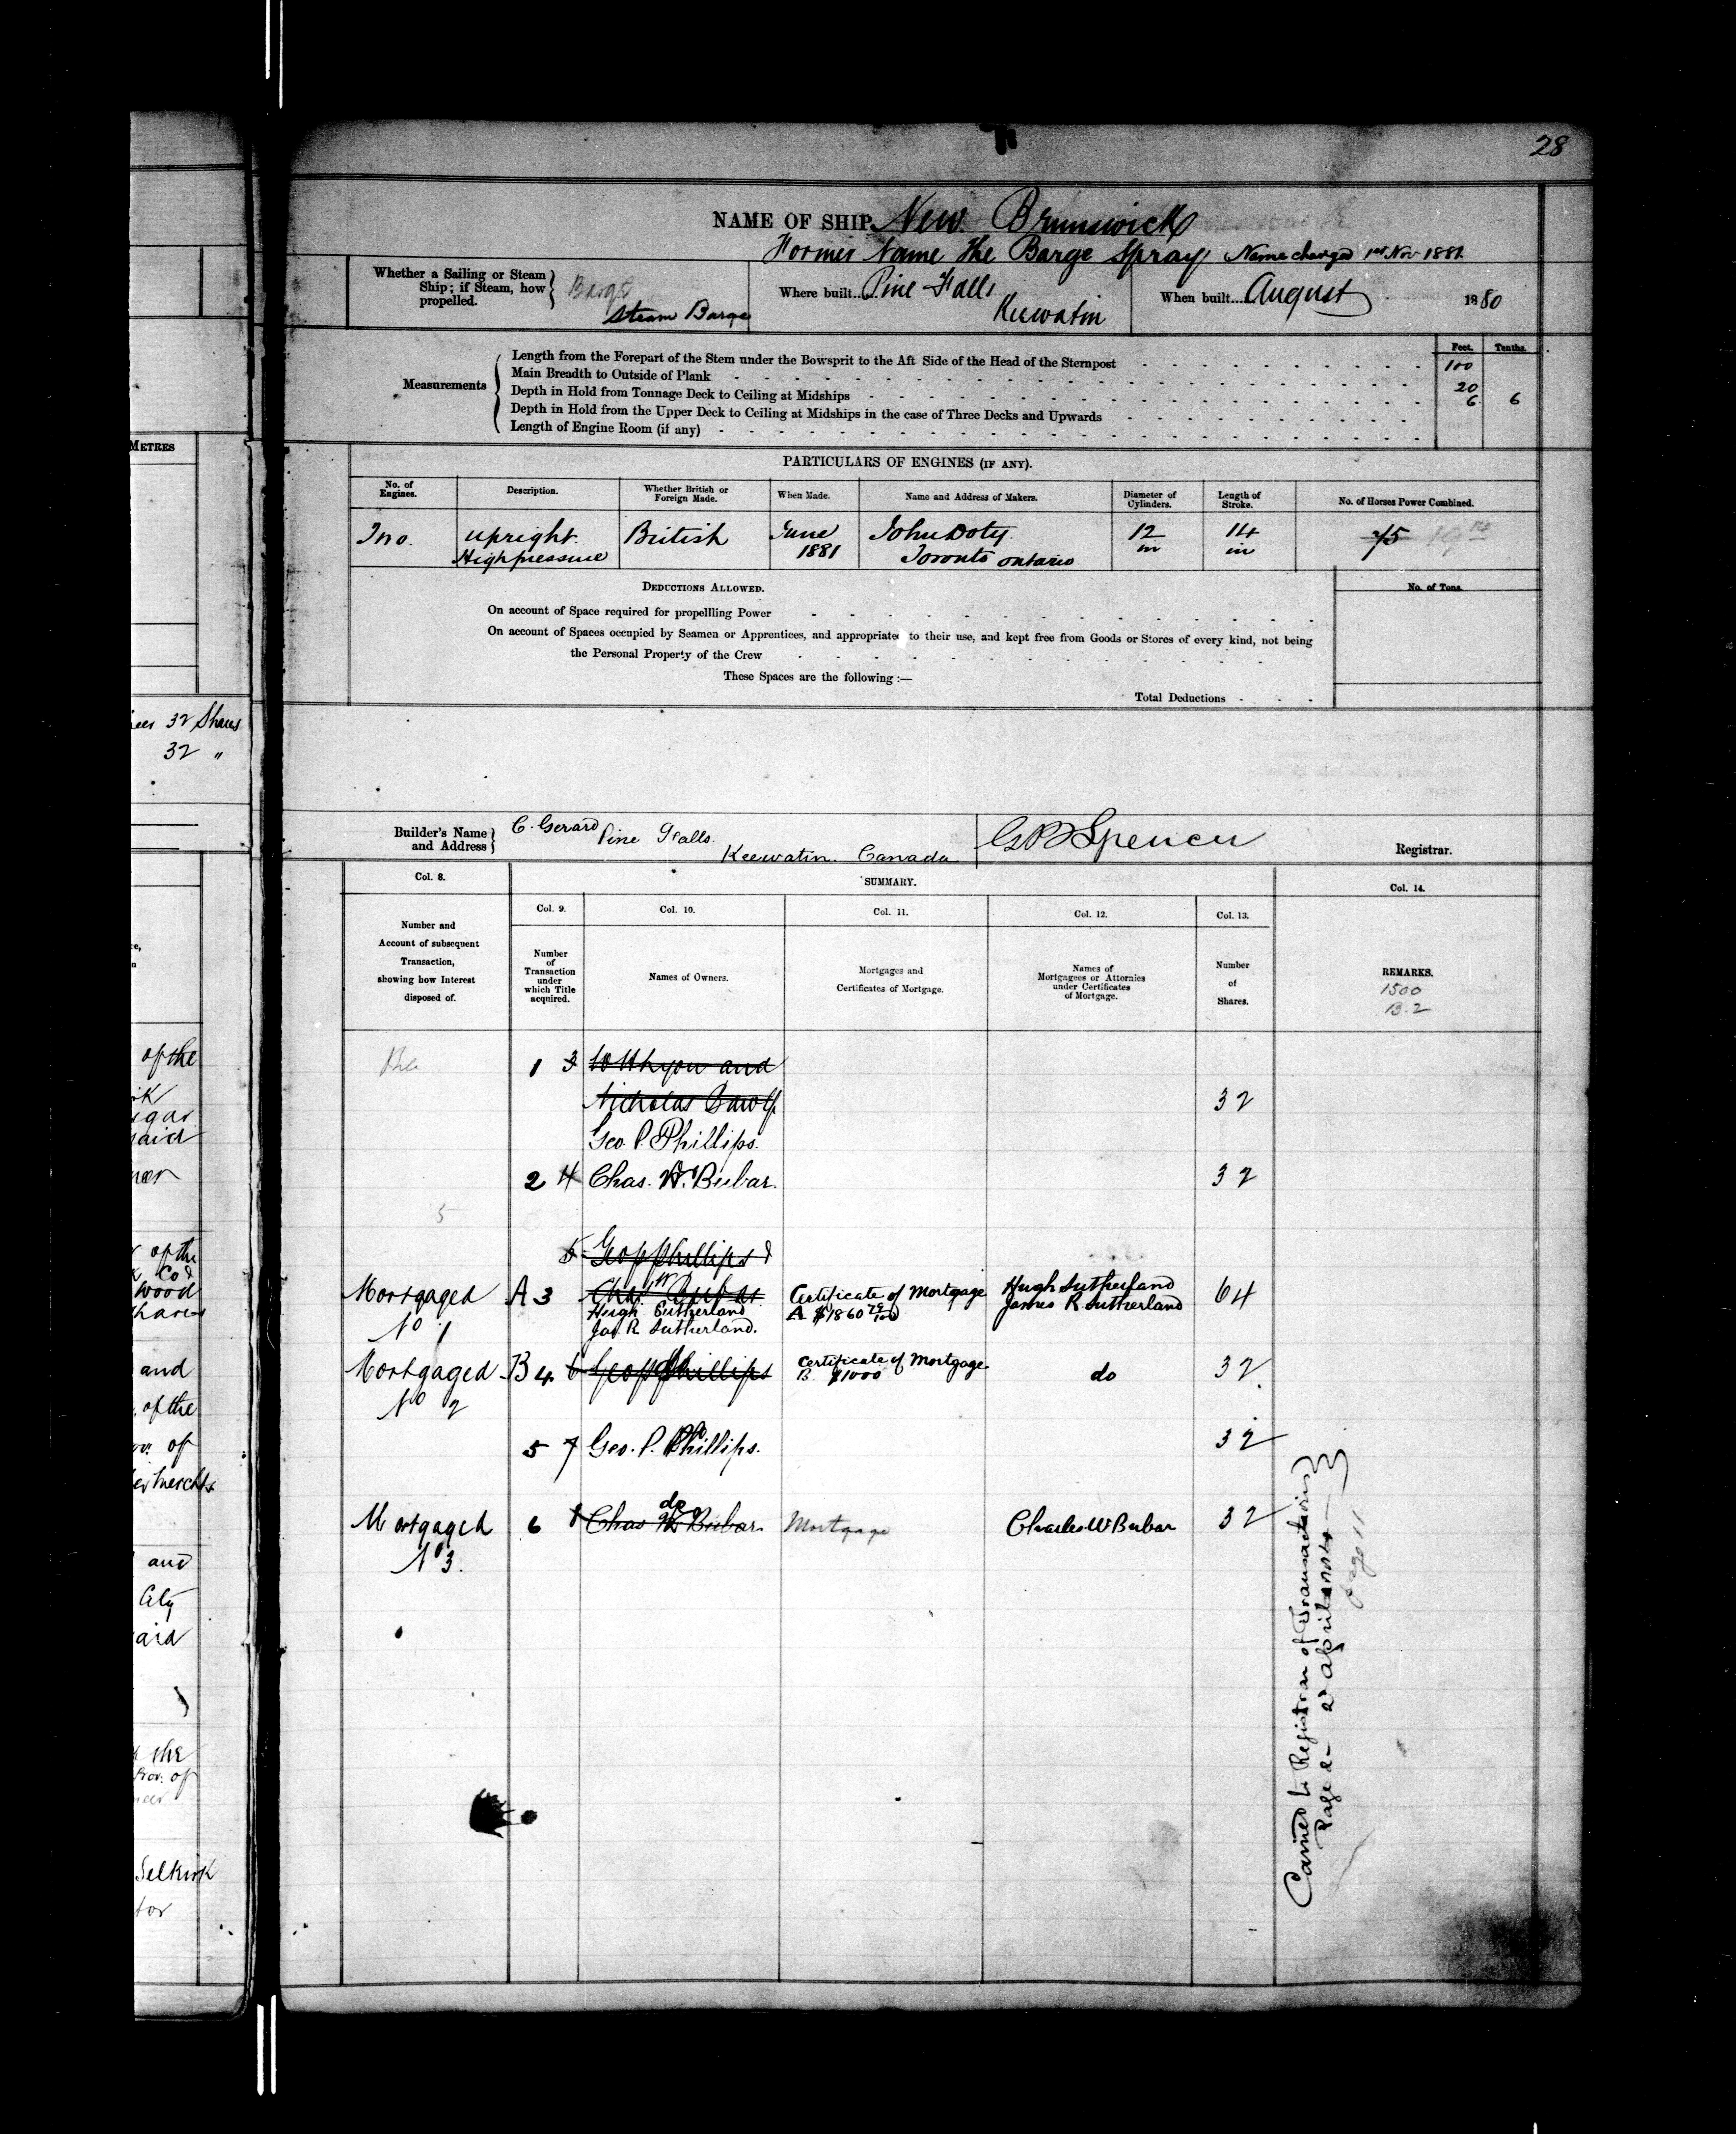 28
NAME OF SHIP New Brunswick
Former Name the Barge Spray Name changed 1st Nov 1881.
Whether a Sailing or Steam Ship; if Steam, how propelled.
Barge
Steam Barge
Where built... Pine Falls
Keewatin
When built... August 1880
Feet. Tenths.
Measurements
Length from the Forepart of the Stem under the Bowsprit to the Aft Side of the Head of the Sternpost 100
Main Breadth to Outside of Plank 20
Depth in Hold from Tonnage Deck to Ceiling at Midships 6. 6
Depth in Hold from the Upper Deck to Ceiling at Midships in the case of Three Decks and Upwards
Length of Engine Room (if any)
PARTICULARS OF ENGINES (IF ANY).
No. of Engines.
Description.
Whether British or Foreign Made.
When Made.
Name and Address of Makers.
Diameter of Cylinders.
Length of Stroke.
No. of Horses Power Combined.
upright British June John Doty 12 14 75
Highpressure 1881 Toronto ontario in in
DEDUCTIONS ALLOWED.
No. of Tons.
On account of Space required for propellling Power
On account of Spaces occupied by Seamen or Apprentices, and appropriated to their use, and kept free from Goods or Stores of every kind, not being
the Personal Property of the Crew
These Spaces are the following :—
Total Deductions
Builder's Name and Address
C. Gerard Pine Falls.
Keewatin. Canada
Spencer
Registrar.
Col. 8.
SUMMARY.
Col. 14.
Col. 9.
Col. 10.
Col. 11.
Col. 12.
Col. 13.
Number and Account of subsequent Transaction, showing how Interest disposed of.
Number of Transaction under which Title acquired.
Names of Owners.
Mortgages and Certificates of Mortgage.
Names of Mortgagees or Attornies under Certificates of Mortgage.
Number of Shares.
REMARKS.
1500
B.2
1 3 and
Nicholas 32
Geo. P. Phillips.
2 4 Chas. W. Bubar. 32
5
5 Geo P Phillips &
Mortgaged A 3 Chas W Bubar Certificate of Mortgage Hugh Sutherland 64
No 1 Hugh Sutherland A $1860 James R. Sutherland
Jas R Sutherland.
Mortgaged B 4 6 Geo P Phillips Certificate of Mortgage do 32
No 2 B $1000
5 7 Geo. P. Phillips. 32
do
Mortgaged 6 8 Chas W Bubar. Mortgage Charles W Bubar 32
No 3.
Carried to Registrar of Transactions
Page 2 - 2 April
page 11
METRES
32 Shares
32 "
of the
said
of the
Co &
Wood
Shares
and
of the
of
and
City
said
the
of
Selkirk
for